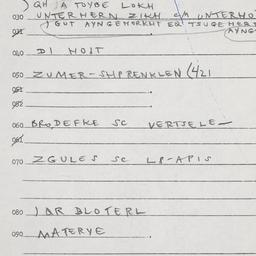 ) QH JA TOYBE LOKH
030 UNTERHERN ZIKH c/n UNTERHO
031 ) GUT AYNGEMERKHT EQ TSUGEHERT
(AYNG
040 DI HOIT
050 ZUMER-SHPRENKLEN (421
051
052
060 BRODEFKE SC VERTSELE—
061
070 ZGULES SC LP-APIS
080 ) AR BLOTERL
090 MATERYE